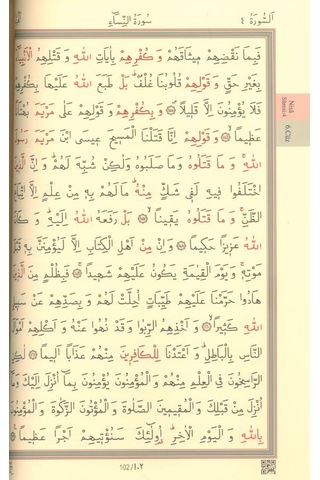 اَلسُّورَةُ ٤
سُورَةُ النِّسَاءِ
فَبِمَا نَقْضِهِمْ مِيثَاقَهُمْ وَ كُفْرِهِمْ بِاٰيَاتِ اللّٰهِ وَ قَتْلِهِمُ
بِغَيْرِ حَقٍّ وَ قَوْلِهِمْ قُلُوبُنَا غُلْفٌ بَلْ طَبَعَ اللّٰهُ عَلَيْهَا بِكُفْرِهِمْ
فَلَا يُؤْمِنُونَ اِلَّا قَلِيلًا وَ بِكُفْرِهِمْ وَ قَوْلِهِمْ عَلٰى مَرْيَمَ
عَظِيمًا وَ قَوْلِهِمْ اِنَّا قَتَلْنَا الْمَسِيحَ عِيسَى ابْنَ مَرْيَمَ رَسُولَ
اللّٰهِ وَ مَا قَتَلُوهُ وَ مَا صَلَبُوهُ وَلٰكِنْ شُبِّهَ لَهُمْ وَ اِنَّ
اخْتَلَفُوا فِيهِ لَفِى شَكٍّ مِنْهُ مَا لَهُمْ بِهِ مِنْ عِلْمٍ اِلَّا
الظَّنِّ وَ مَا قَتَلُوهُ يَقِينًا بَلْ رَفَعَهُ اللّٰهُ اِلَيْهِ وَ
اللّٰهُ عَزِيزًا حَكِيمًا وَ اِنْ مِنْ اَهْلِ الْكِتَابِ اِلَّا لَيُؤْمِنَنَّ بِهِ
مَوْتِهِ وَ يَوْمَ الْقِيٰمَةِ يَكُونُ عَلَيْهِمْ شَهِيدًا فَبِظُلْمٍ مِنَ
هَادُوا حَرَّمْنَا عَلَيْهِمْ طَيِّبَاتٍ اُحِلَّتْ لَهُمْ وَ بِصَدِّهِمْ عَنْ
اللّٰهِ كَثِيرًا وَ اَخْذِهِمُ الرِّبٰوا وَ قَدْ نُهُوا عَنْهُ وَ اَكْلِهِمْ
النَّاسِ بِالْبَاطِلِ وَ اَعْتَدْنَا لِلْكَافِرِينَ مِنْهُمْ عَذَابًا اَلِيمًا
الرَّاسِخُونَ فِى الْعِلْمِ مِنْهُمْ وَ الْمُؤْمِنُونَ يُؤْمِنُونَ بِمَا اُنْزِلَ اِلَيْكَ
اُنْزِلَ مِنْ قَبْلِكَ وَ الْمُقِيمِينَ الصَّلٰوةَ وَ الْمُؤْتُونَ الزَّكٰوةَ وَ
بِاللّٰهِ وَ الْيَوْمِ الْاٰخِرِ اُولٰئِكَ سَنُؤْتِيهِمْ اَجْرًا عَظِيمًا
102/١٠٢
Nisâ
Sûresi:4
6.Cüz